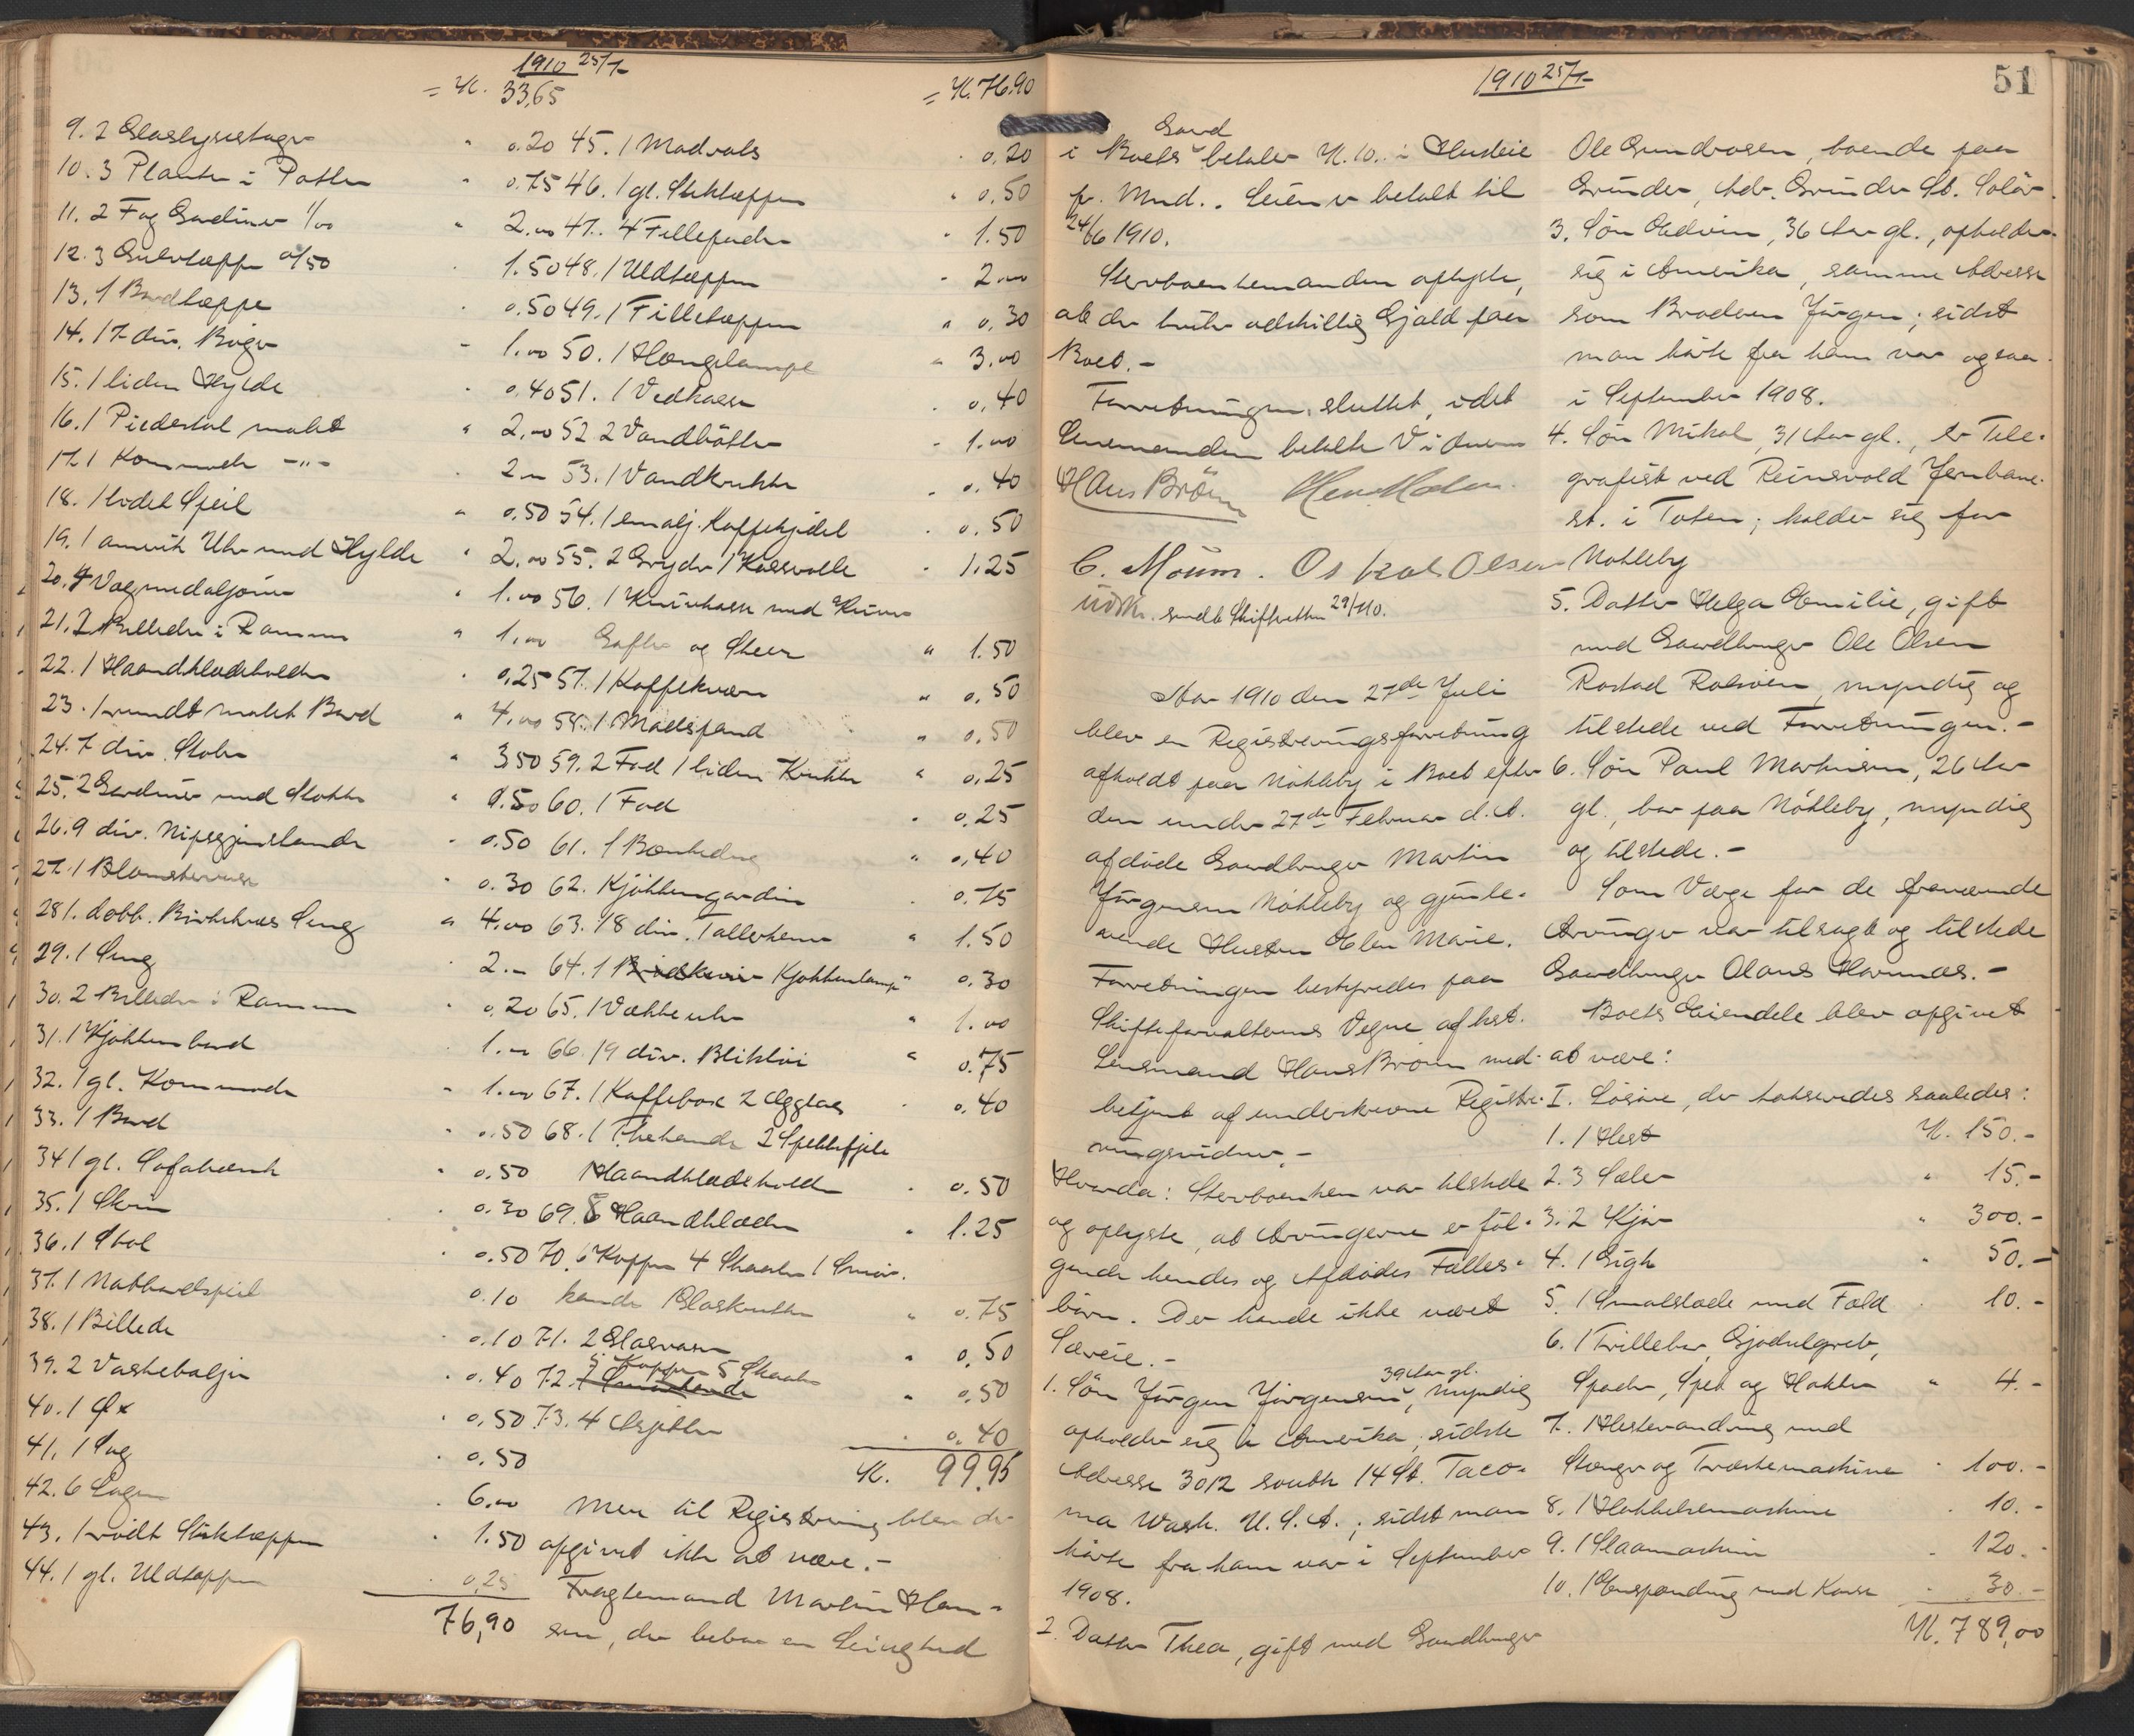 1910 25/7
= K. 33,65
9. 2 Glaslysestager " 0.20
10. 3 Planter i Potter " 0.75
11. 2 Fag Gardiner 1/00 " 2.00
12. 3 Gulvtæpper 0/50 " 1.50
13. 1 Bordtæppe " 0.50
14. 17 div. Bøger " 1.00
15. 1 liden Hylde " 0.40
16. 1 Piedestal malet " 2.00
17. 1 Kommode -"- " 2.00
18. 1 Speil " 0.50
19. 1 amerik Uhr med Hylde " 2.00
20. 4 Vægmedaljoner " 1.00
21. 2 Billeder i Ramme " 1.00
22. 1 Haandklædeholder " 0.25
23. 1 rundt malet Bord " 4.00
24. 7 div. Stoler " 3.50
25. 2 Gardiner med Stokke " 1.50
26. 9 div. Nipsgjenstande " 0.50
27. 1 Blomstervase " 0.30
28. 1 dobb. Birketræs Seng " 4.00
29. 1 Seng " 2.-
30. 2 Billeder i Ramme " 0.20
31. 1 Kjøkkenbord " 1.-
32. 1 gl. Kommode " 1.00
33. 1 Bord " 0.50
34. 1 gl. Sofabænk " 0.50
35. 1 Skrin " 0.30
36. 1 Stol " 0.50
37. 1 Natbordspeil 0.10
38. 1 Billede " 0.10
39. 2 Vaskebaljer " 0.40
40. 1 Øx " 0.50
41. 1 Sag " 0.50
42. 6 Lagen " 6.00
43. 1 rødt Stiktæppe " 1.50
44. 1 gl. Uldtæppe " 0.25
76,90
= K. 76.90
45. 1 Madvals " 0.20
46. 1 gl. Stiktæppe " 0.50
47. 4 Filleputer " 1.50
48. 1 Uldtæppe " 2.00
49. 1 Filletæppe " 0.30
50. 1 Hængelampe " 3.00
51. 1 Vedkasse " 0.40
52 2 Vandbøtter " 1.00
53. 1 Vandkrukke " 0.40
54. 1 emalj. Kaffekjedel " 0.50
55. 2 Gryder 1 Kasserolle " 1.25
56. 1 Knivkasse med Knive
Gafler og Skeer " 1.50
57. 1 Kaffekværn " 0.50
58. 1 Madspand " 0.50
59. 2 Fad 1 liden Krukke " 0.25
60. 1 Fad " 0.25
61. 1 " 0.40
62. Kjøkkengardin " 0.75
63. 18 div. Tallerkener " 1.50
64. 1 Kjøkkenlampe " 0.30
65. 1 Vækkeuhr " 1.00
66. 19 div. Bliktøi " 0.75
67. 1 Kaffebox 2 Æggglas " 0.40
68. 1 Thekande 2 Spekkefjele
1 Haandklædeholder " 0.50
69. 8 Haandklæder " 1.25
70. 6 Kopper 4 Skaaler 1 Smør-
kande Glaskrukke " 0.75
71. 2 Glasvaser " 0.50
72. 5 Kopper 5 Skaale " 0.50
73. 4 Asjetter " 0.40
K. 99.95
Mere til Registrering blev der
opgivet ikke at være.-
Fragtemand Martin Han-
sen, der bebor en Leilighed
1910 25/7
51
i Boets Gaard betaler K. 10.- i Husleie
pr. Mnd.. Leien er betalt til
24/6 1910.
Stervboenkemanden oplyste,
at der hviler adskillig Gjæld paa
Boet.-
Forretningen sluttet, idet
Lensmanden betalte Vidnerne
Hans Brøun
C. Moum. Oskar Olsen
Udskr. sendt Skifteretten 29/7 10.
Aar 1910 den 27de Juli
blev en Registreringsforretning
afholdt paa Nøkleby i Boet efter
den under 27de Februar d.A.
afdøde Gaardbruger Martin
Jørgensen Nøkleby og gjenle-
vende Hustru Ellen Marie.
Forretningen bestyredes paa
Skifteforvalterens Vegne af kst.
Lensmand Hans Brøun med-
betjent af underskrevne Registre-
ringsvidner.-
Hvorda: Stervboenken var tilstede
og oplyste, at Arvingerne er føl-
gende hendes og Afdødes Fælles-
børn. Der havde ikke været
Særeie.-
1. Søn Jørgen Jørgensen, 39 Aar gl. myndig
opholder sig i Amerika, sidste
Adresse 3012 south 14 St. Taco-
ma Wash. U.S.A.; sidst man
hørte fra ham var i September
1908.
2. Datter Thea, gift med Gaardbruger
Ole Gundrosen, boende paa
Grinder, Adr. Grinder St. Solør.
3. Søn Edvin, 36 Aar gl., opholder
sig i Amerika, samme Adresse
som Broderen Jørgen; sidst
man hørte fra ham var ogsaa
i September 1908.
4. Søn Mikal, 31 Aar gl., er Tele-
grafist ved Reinsvold Jernbane-
st. i Toten; kalder sig for
Nøkleby
5. Datter Helga Emilie, gift
med Gaardbruger Ole Olsen
Rostad myndig og
tilstede ved Forretningen.-
6. Søn Paul Martinsen, 26 Aar
gl., bor paa Nøkleby, myndig
og tilstede.-
Som Værge for de fraværende
Arvinger var tilsagt og tilstede
Gaardbruger Olaus Hornnæs.-
Boets Eiendele blev opgivet
at være:
I. Løsøre, der taksertes saaledes:
1. 1 Hest K. 150.-
2. 3 Sæler " 15.-
3. 2 Kjør " 300.-
4. 1 Gigh " 50.-
5. 1 Smalslæde med Fæld " 10.-
6. 1 Trillebør, Gjødselgreb,
Spader, Spet og Hakker " 4.-
7. 1 Hestevandring med
Stænger og Træskemaskine " 100.-
8. 1 Hakkelsemaskine " 10.-
9. 1 Slaamaskine " 120.-
10. 1 Enspænding med Karve " 30.-
K. 789,00